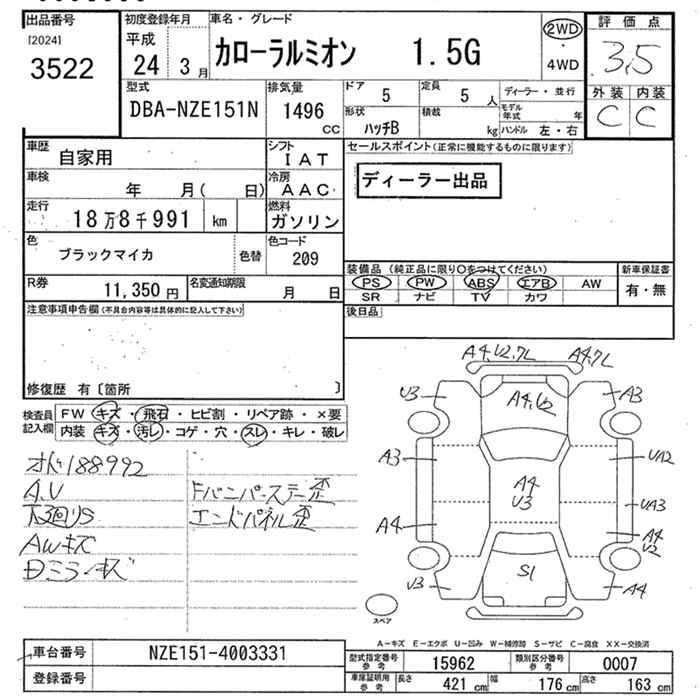 出品番号
[2024]
3522
初度登録年月
平成
24 3月
車名・グレード
カローラルミオン 1.5G
2WD
・
4WD
評価点
3.5
外装 内装
C C
型式
DBA-NZE151N
排気量
1496
CC
ドア 5
定員 5 人
形状
ハッチB
積載
kg
ディーラー・並行
モデル年式 年
ハンドル 左・右
車歴
自家用
シフト
IAT
車検
年 月( 日)
冷房
AAC
走行
18万8千991 km
燃料
ガソリン
色
ブラックマイカ
色替
色コード
209
R券
11,350 円
名変通知期限
月 日
セールスポイント(正常に機能するものに限ります)
ディーラー出品
装備品 (純正品に限り○をつけてください)
PS PW ABS エアB AW
SR ナビ TV カワ
新車保証書
有・無
後日品
注意事項申告欄(不具合内容等は具体的に記入して下さい)
修復歴 有〔箇所 〕
検査員
記入欄
FW キズ・飛石・ヒビ割・リペア跡・×要
内装 キズ・汚レ・コゲ・穴・スレ・キレ・破レ
オド188992
A.V
下廻りS
AWキズ
Dミラーキズ
Fバンパーステー歪
エンドパネル歪
A4,U2,7L
A4,7L
U3
A4,U2
A3
A3
UA2
A4
U3
UA3
A4
A4
U2
S1
U3
A4
スペア
A－キズ E－エクボ U－凹み W－補修跡 S－サビ C－腐食 XX－交換済
車台番号
NZE151-4003331
登録番号
型式指定番号
参考
15962
類別区分番号
参考
0007
車庫証明用
参考
長さ 421 cm
幅 176 cm
高さ 163 cm